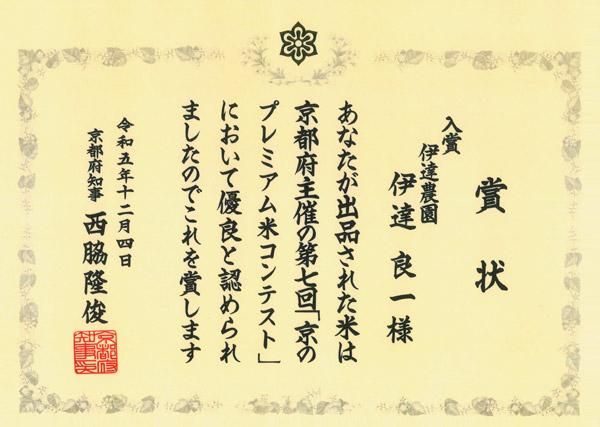 賞状
入賞
伊達農園
伊達良一様
あなたが出品された米は
京都府主催の第七回「京の
プレミアム米コンテスト」
において優良と認められ
ましたのでこれを賞します
令和五年十二月四日
京都府知事 西脇隆俊
京都府知事之印